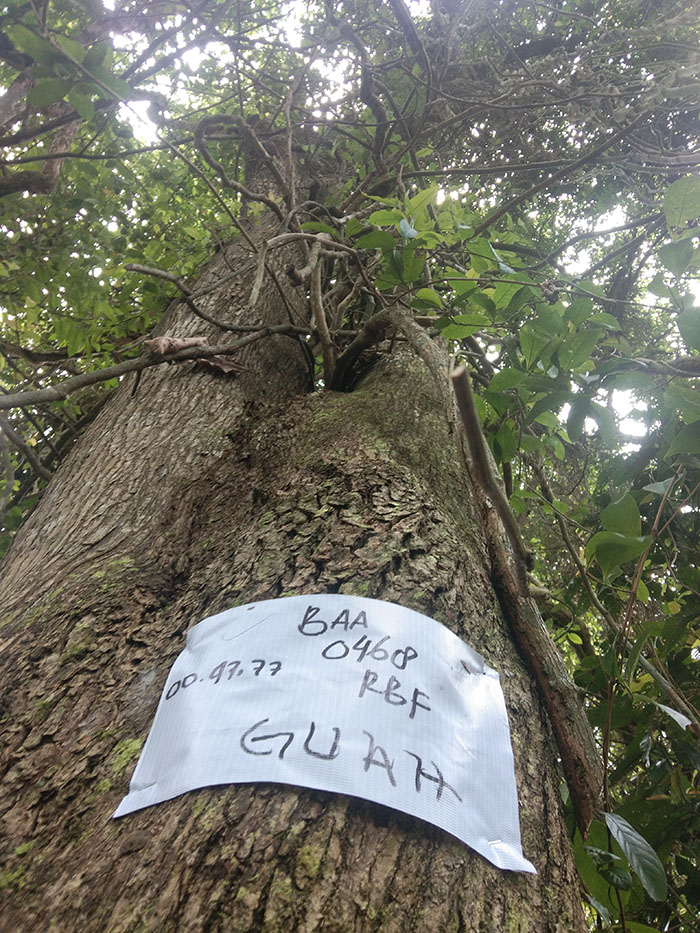 BAA
0468
00.97.77
RBF
GUAH